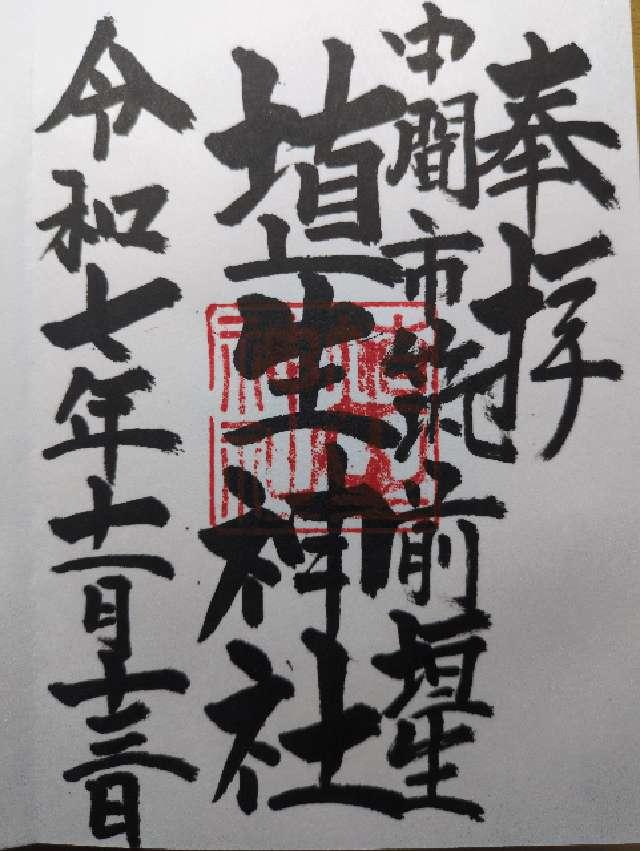 奉拝
中間市筑前垣生
埴生神社
令和七年十一月十三日